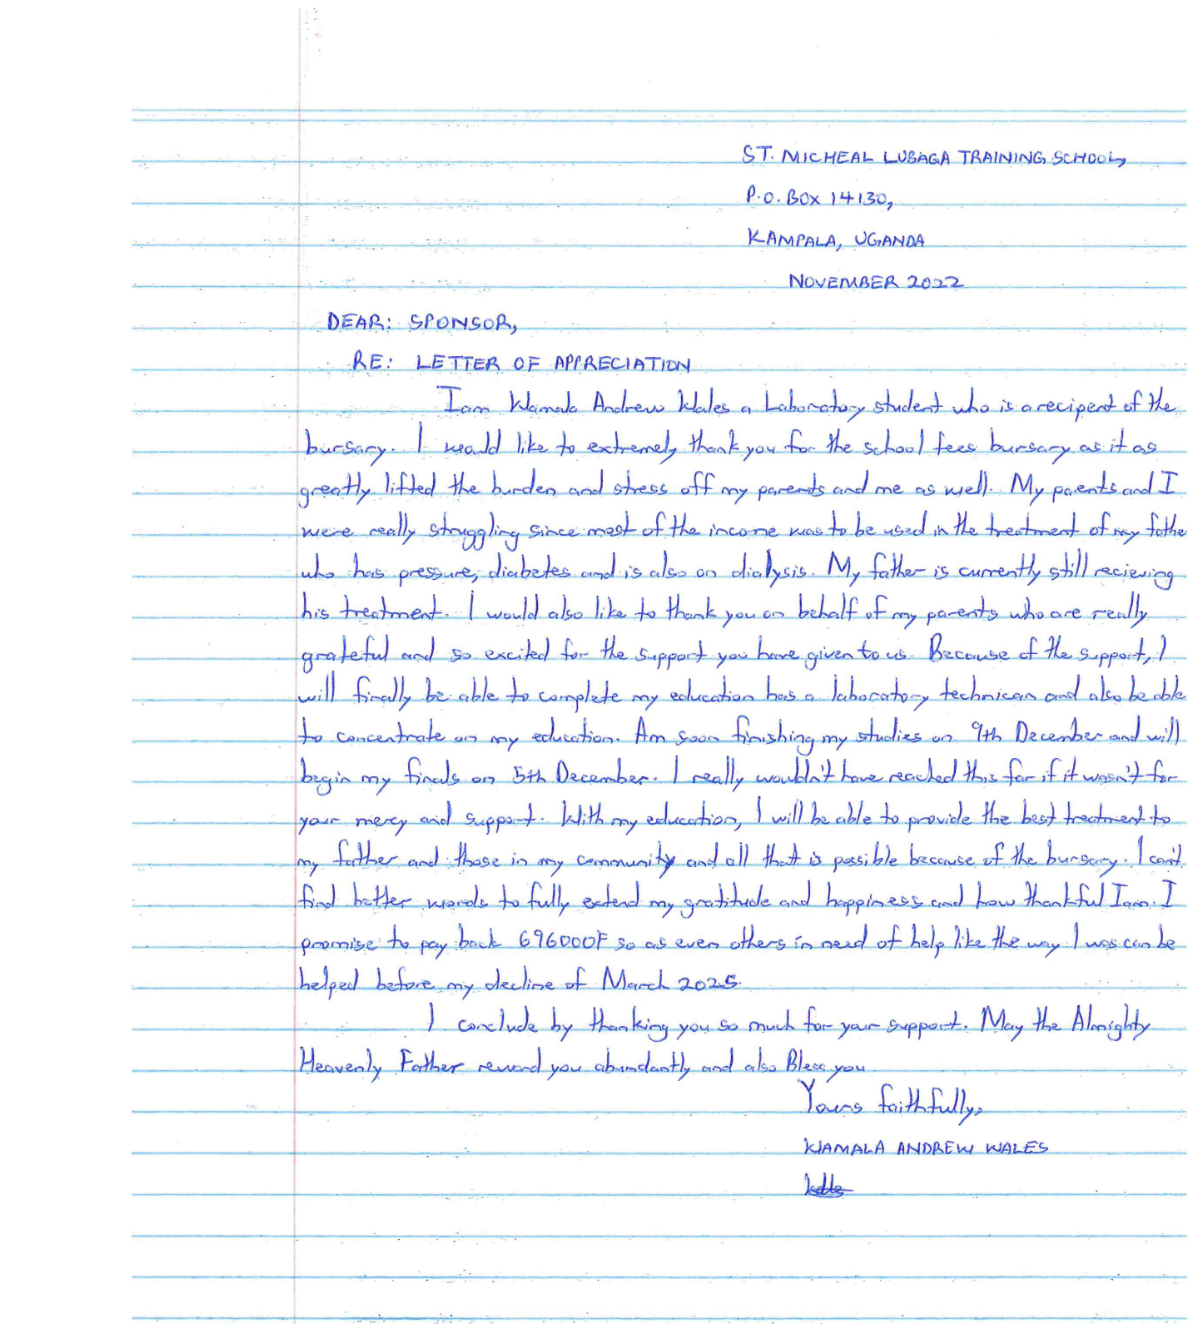 ST. MICHEAL LUBAGA TRAINING SCHOOL,
P.O. BOX 14130,
KAMPALA, UGANDA
NOVEMBER 2022
DEAR: SPONSOR,
RE: LETTER OF APPRECIATION
Iam Wamala Andrew Wales a Laboratory student who is a recipent of the
bursary. I would like to extremely thank you for the school fees bursary as it as
greatly lifted the burden and stress off my parents and me as well. My parents and I
were really struggling since most of the income was to be used in the treatment of my fathe
who has pressure, diabetes and is also on dialysis. My father is currently still recieving
his treatment. I would also like to thank you on behalf of my parents who are really
grateful and so excited for the support you have given to us. Because of the support, I
will finally be able to complete my education has a laboratory technican and also be able
to concentrate on my education. Am soon finishing my studies on 9th December and will
begin my finals on 5th December. I really wouldn't have reached this far if it wasn't for
your mercy and support. With my education, I will be able to provide the best treatment to
my father and those in my community and all that is possible because of the bursary. I can't
find better words to fully extend my gratitude and happiness and how thankful Iam. I
promise to pay back 696000F so as even others in need of help like the way I was can be
helped before my decline of March 2025.
I conclude by thanking you so much for your support. May the Almighty
Heavenly Father reward you abundantly and also Bless you
Yours faithfully,
WAMALA ANDREW WALES